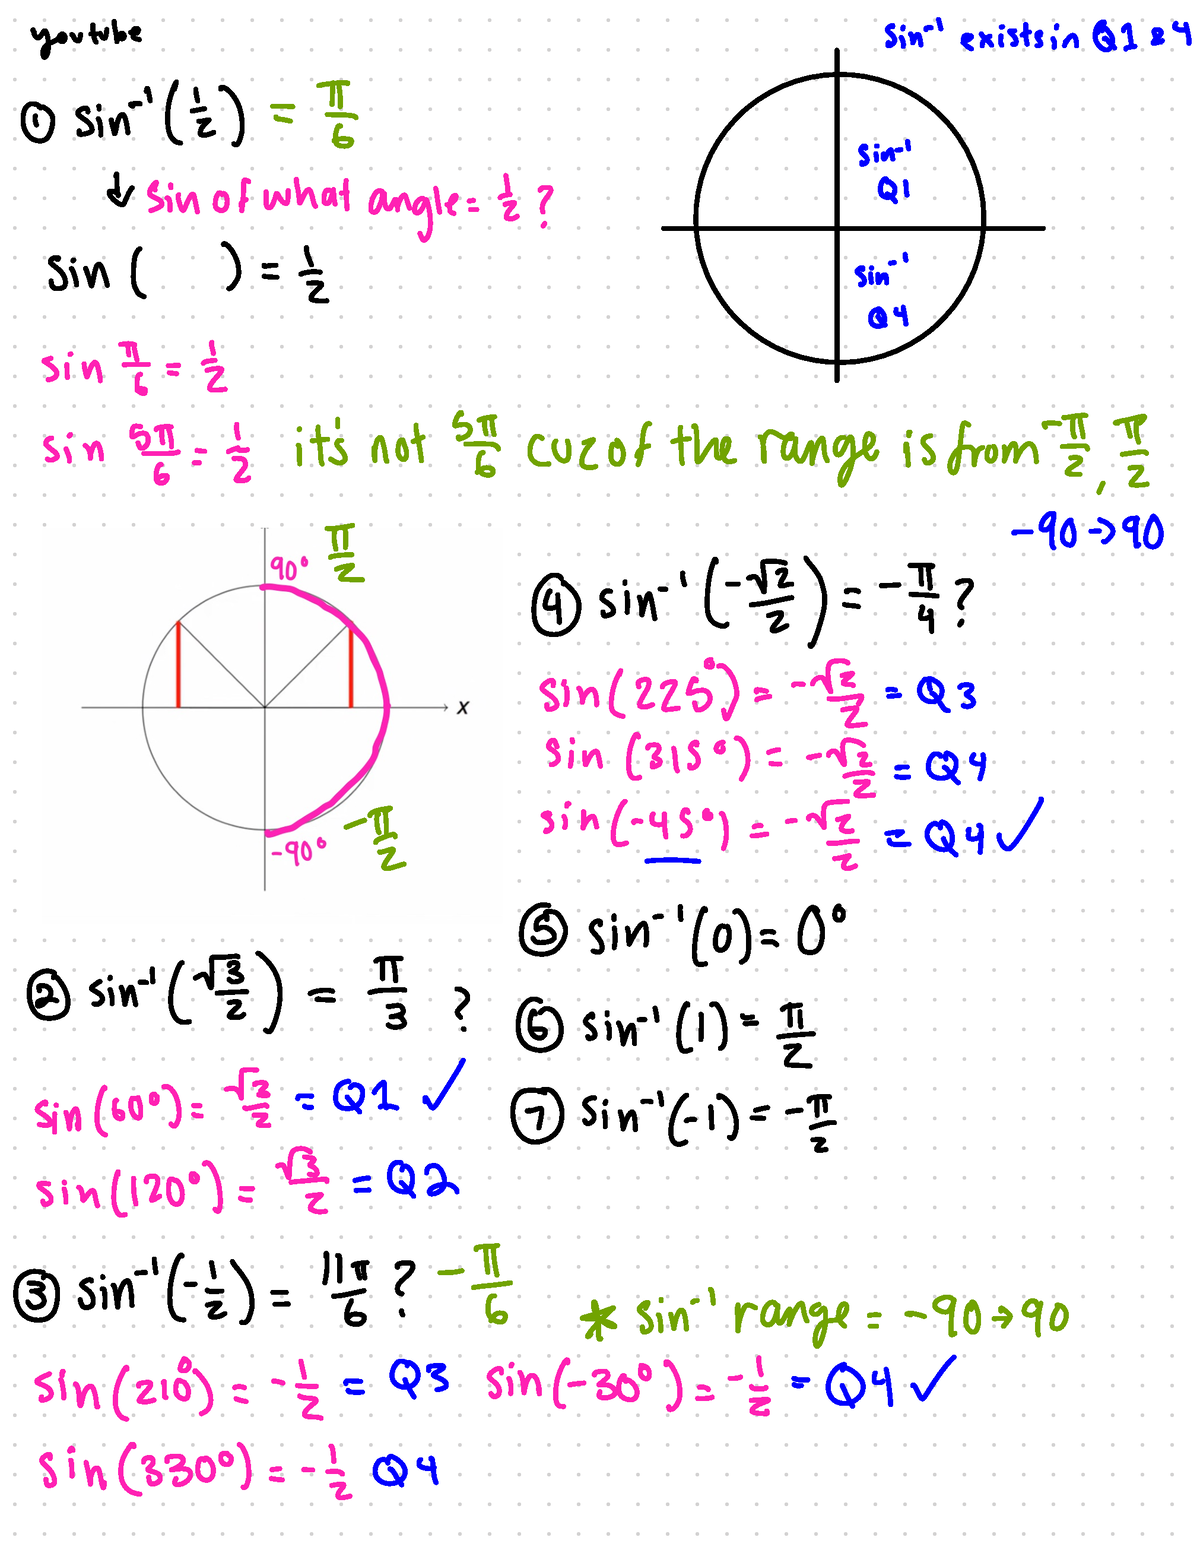 youtube
sin⁻¹ exists in Q1 & 4
① sin⁻¹(1/2) = π/6
↓ sin of what angle = 1/2 ?
sin (   ) = 1/2
sin⁻¹ Q1
sin⁻¹ Q4
sin π/6 = 1/2
sin 5π/6 = 1/2 it's not 5π/6 cuz of the range is from -π/2, π/2
-90 → 90
90° π/2
x
-90° -π/2
④ sin⁻¹(-√2/2) = -π/4 ?
sin(225°) = -√2/2 = Q3
sin (315°) = -√2/2 = Q4
sin(-45°) = -√2/2 = Q4 ✓
⑤ sin⁻¹(0) = 0°
⑥ sin⁻¹(1) = π/2
⑦ sin⁻¹(-1) = -π/2
② sin⁻¹(√3/2) = π/3 ?
sin(60°) = √3/2 = Q1 ✓
sin(120°) = √3/2 = Q2
③ sin⁻¹(-1/2) = 11π/6 ? -π/6
* sin⁻¹ range = -90 → 90
sin(210°) = -1/2 = Q3 sin(-30°) = -1/2 = Q4 ✓
sin(330°) = -1/2 Q4